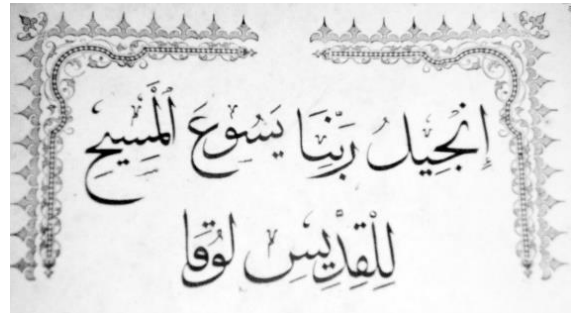 إِنْجِيلُ رَبِّنَا يَسُوعَ ٱلْمَسِيحِ
لِلْقِدِّيسِ لُوقَا